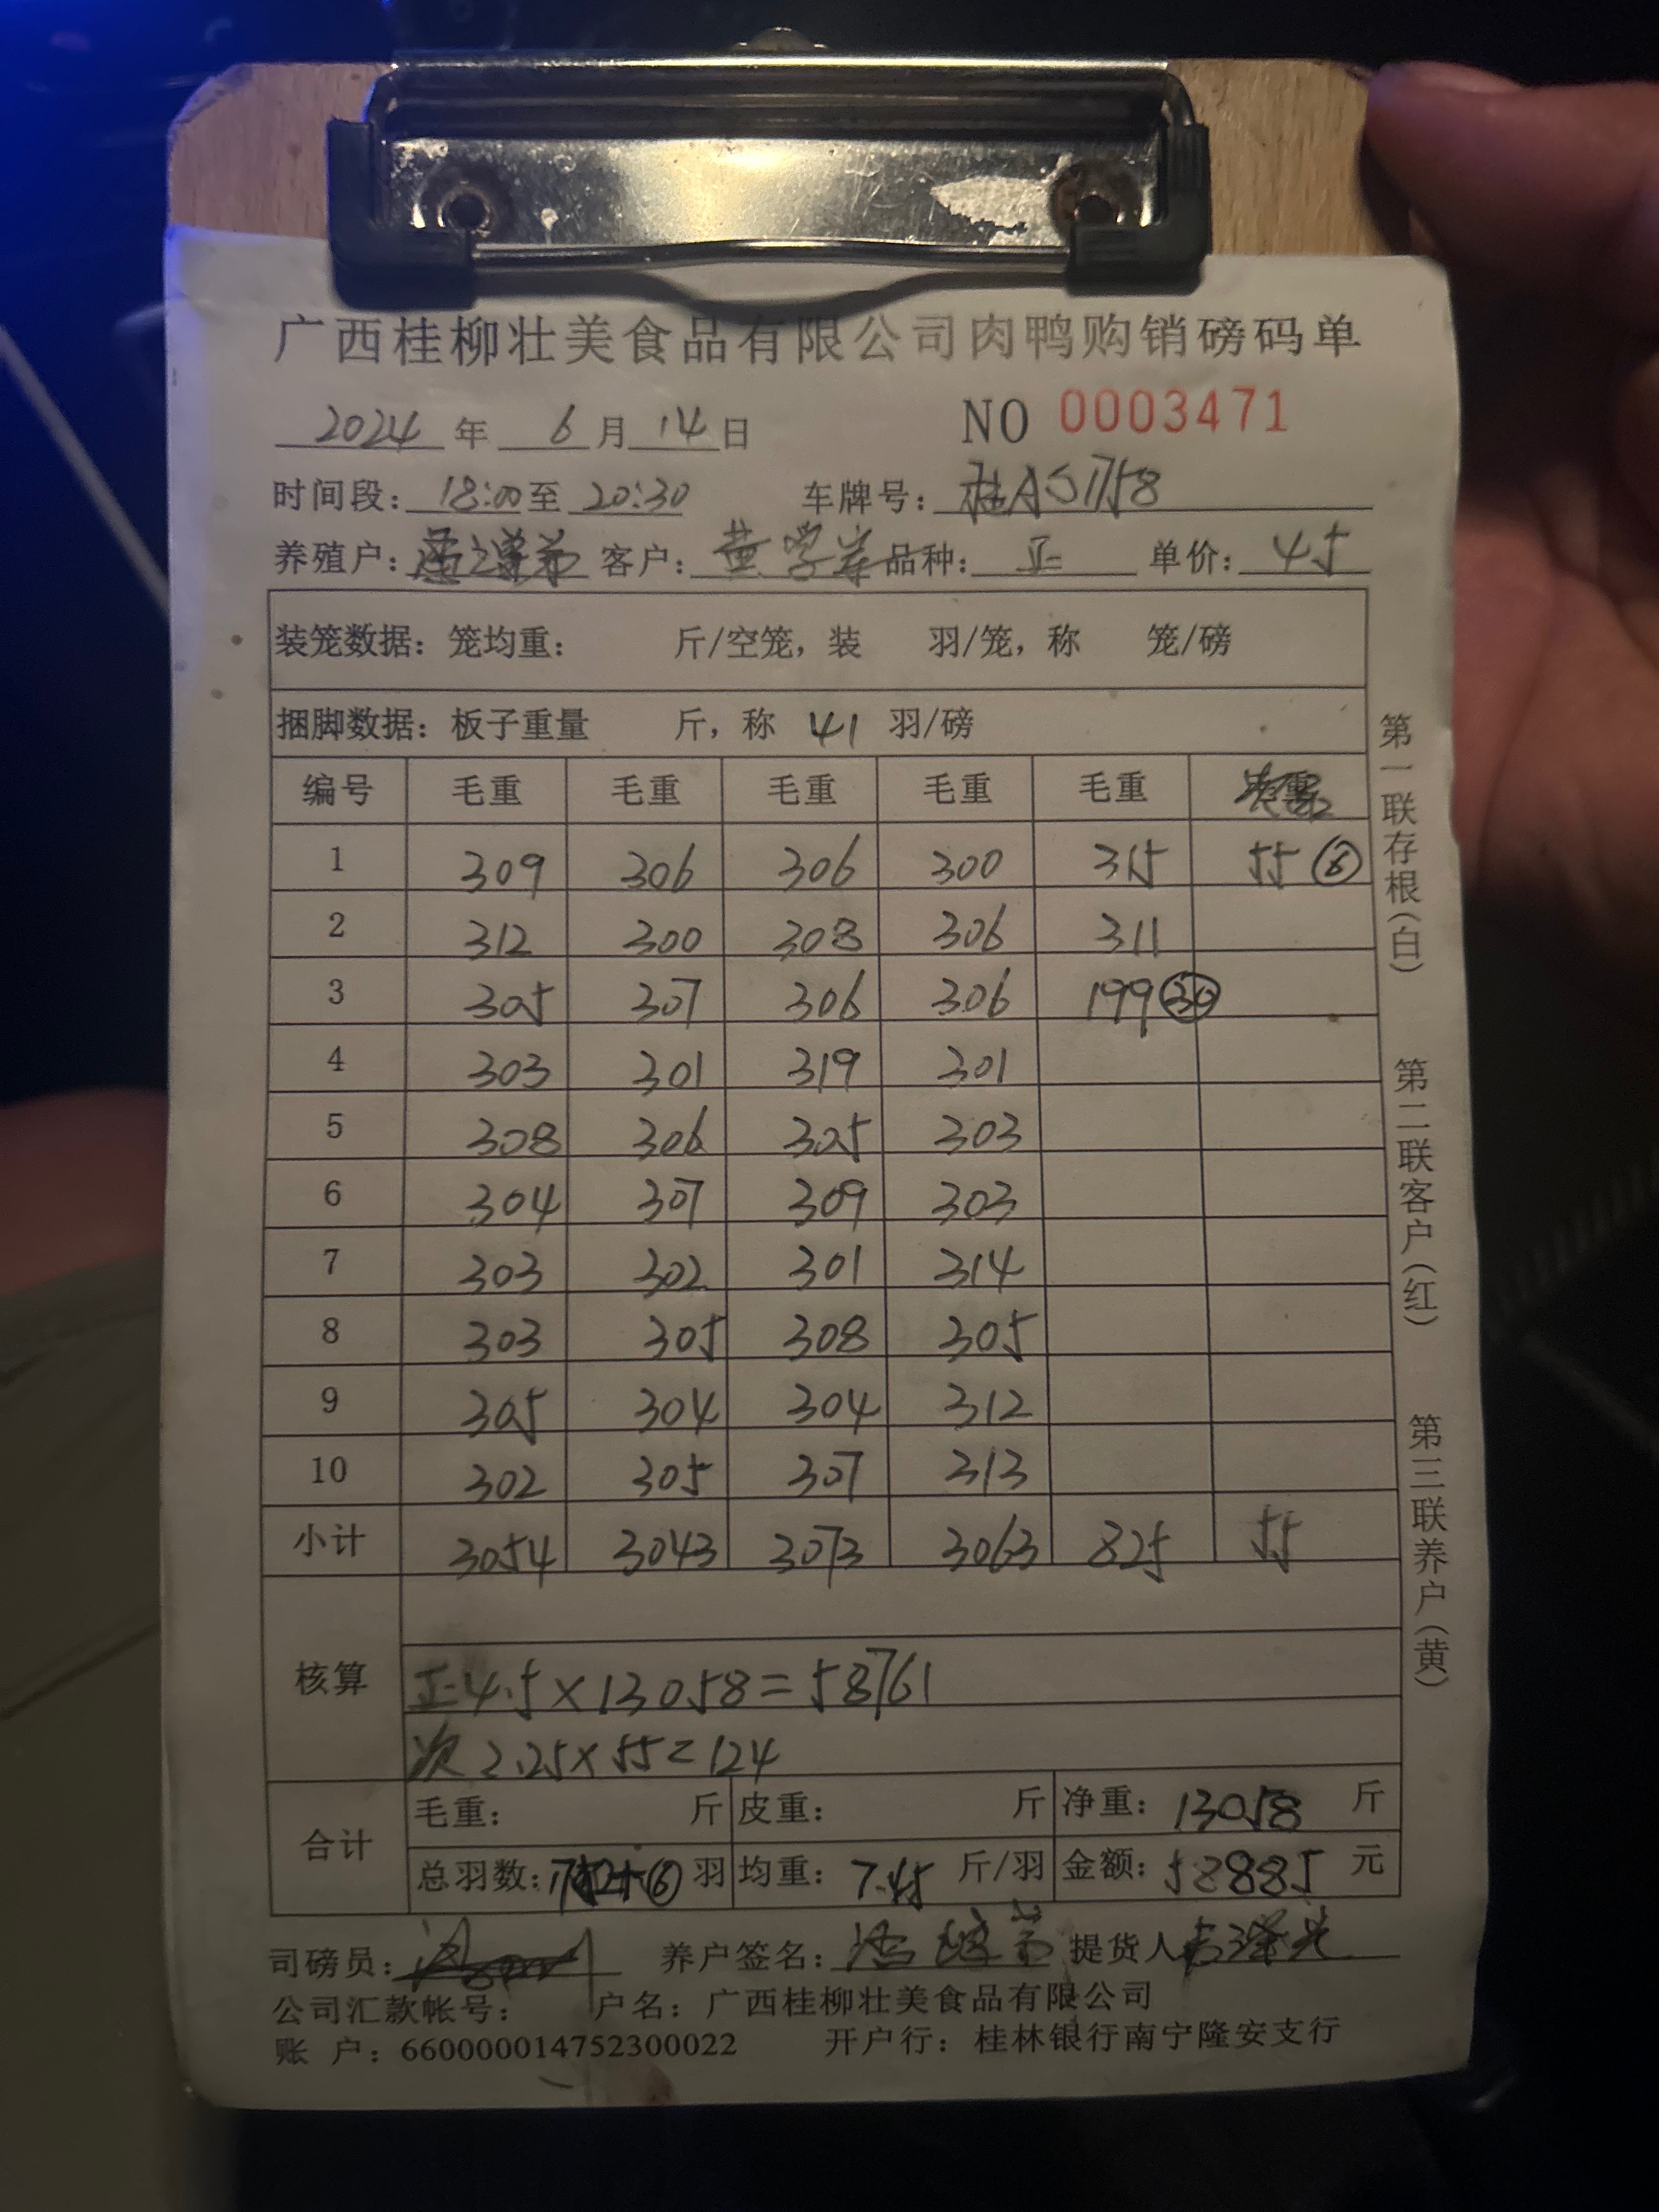 广西桂柳壮美食品有限公司肉鸭购销磅码单
2024 年 6 月 14 日 NO 0003471
时间段: 18:00 至 20:30 车牌号: 桂AS1758
养殖户: 客户: 黄学岸 品种: 正 单价: 4.5
装笼数据: 笼均重: 斤/空笼, 装 羽/笼, 称 笼/磅
捆脚数据: 板子重量 斤, 称 41 羽/磅
编号 毛重 毛重 毛重 毛重 毛重
1 309 306 306 300 315 55 ⑧
2 312 300 308 306 311
3 305 307 306 306 199 ㉚
4 303 301 319 301
5 308 306 305 303
6 304 307 309 303
7 303 302 301 314
8 303 305 308 305
9 305 304 304 312
10 302 305 307 313
小计 3054 3043 3073 3063 825 55
核算
正 4.5×13058=58761
次 2.25×55=124
合计
毛重: 斤 皮重: 斤 净重: 13058 斤
总羽数: 羽 均重: 7.45 斤/羽 金额: 58885 元
司磅员: 养户签名: 提货人
公司汇款帐号: 户名: 广西桂柳壮美食品有限公司
账 户: 660000014752300022 开户行: 桂林银行南宁隆安支行
第一联存根(白) 第二联客户(红) 第三联养户(黄)